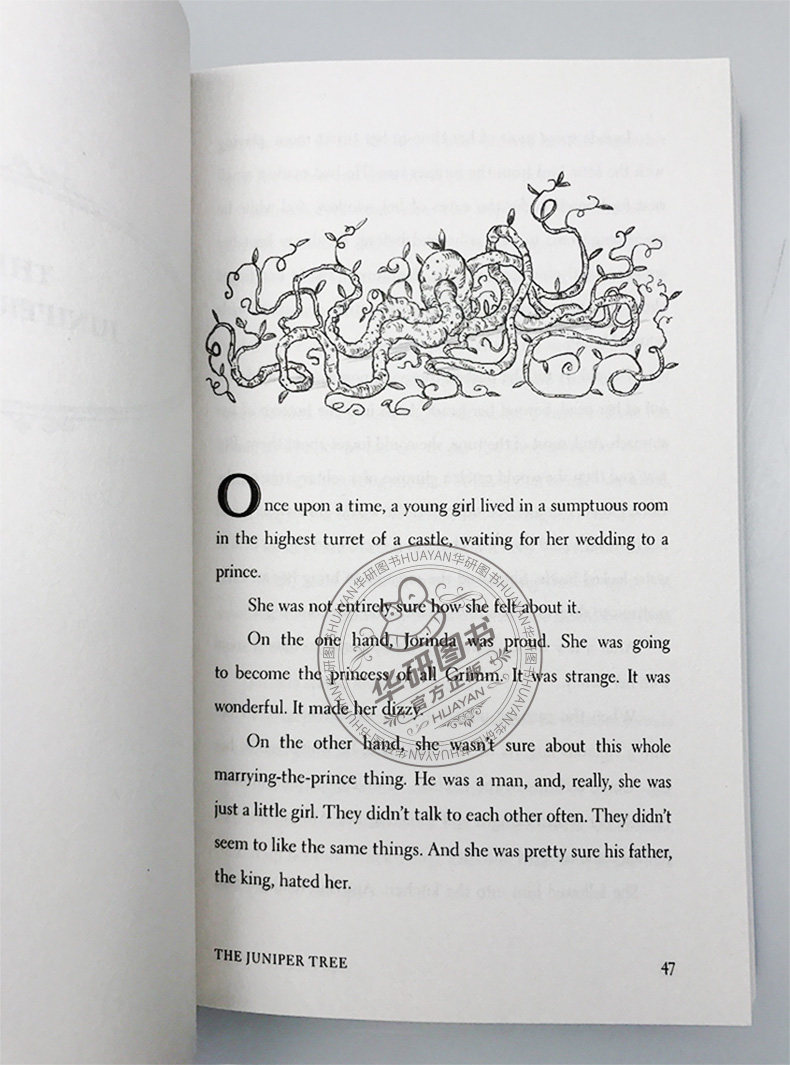 Once upon a time, a young girl lived in a sumptuous room
in the highest turret of a castle, waiting for her wedding to a
prince.
She was not entirely sure how she felt about it.
On the one hand, Jorinda was proud. She was going
to become the princess of all Grimm. It was strange. It was
wonderful. It made her dizzy.
On the other hand, she wasn't sure about this whole
marrying-the-prince thing. He was a man, and, really, she was
just a little girl. They didn't talk to each other often. They didn't
seem to like the same things. And she was pretty sure his father,
the king, hated her.
THE JUNIPER TREE
47
华研图书HUAYAN华研图书HUAYAN华研图书HUAYAN华研图书HUAYAN
华研图书
官方正版
HUAYAN